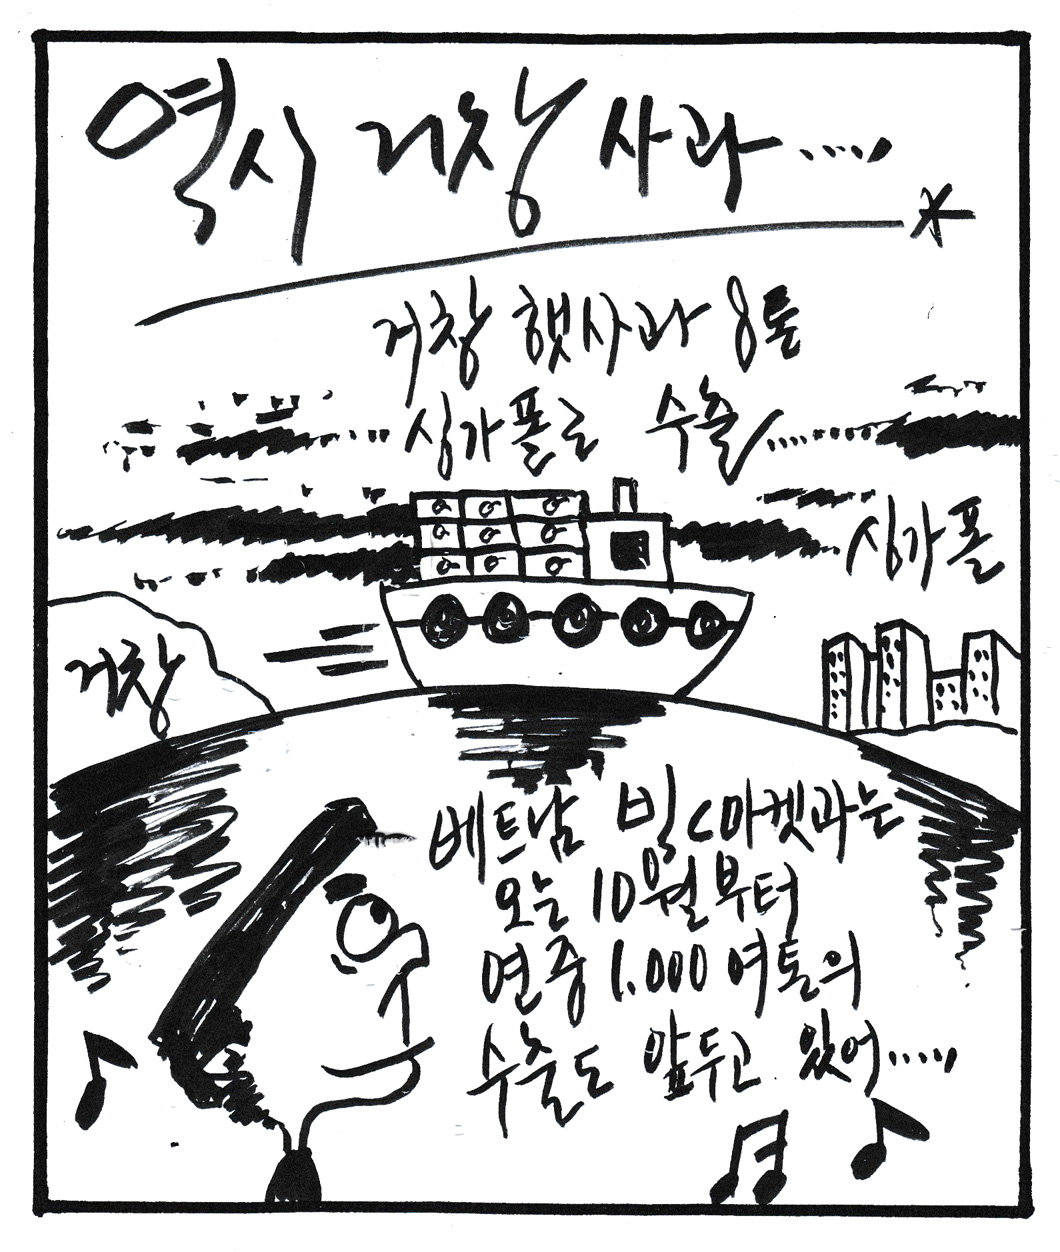 역시 거창 사과.....
거창 햇사과 8톤
싱가폴로 수출.........
싱가폴
거창
베트남 빅C마켓과는
오는 10월부터
연중 1.000여톤의
수출도 앞두고 있어.....